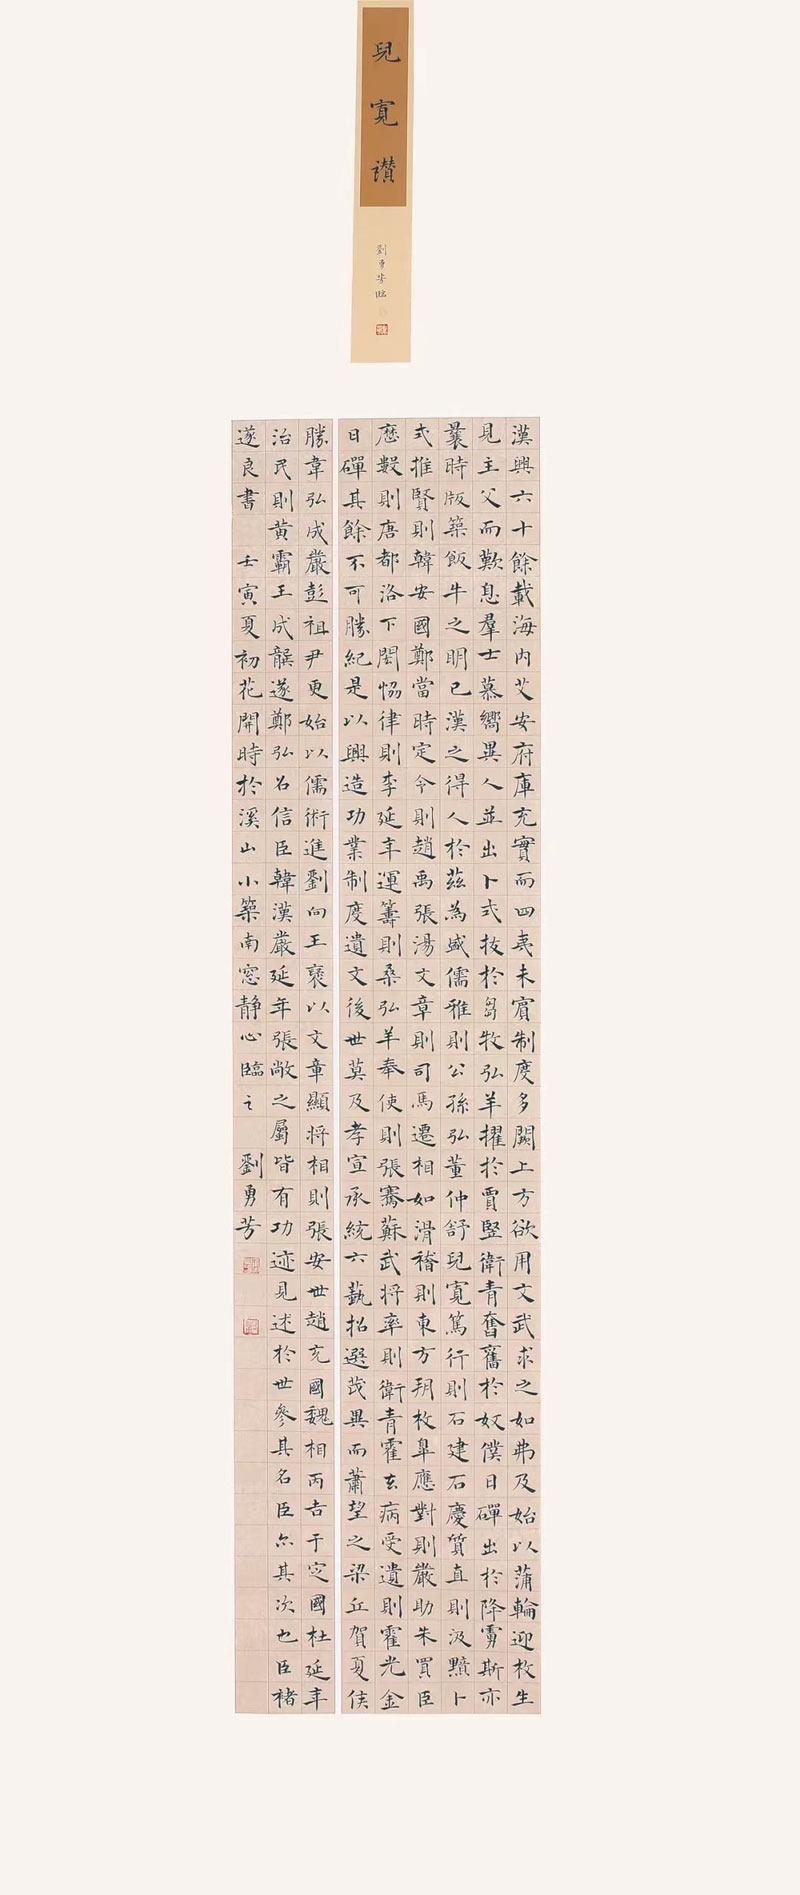 兒寬讃
劉勇芳臨
漢興六十餘載海內艾安府庫充實而四夷未賓制度多闕上方欲用文武求之如弗及始以蒲輪迎枚生
見主父而歎息羣士慕嚮異人並出卜式拔於芻牧弘羊擢於賈豎衛青奮舊於奴僕日磾出於降虜斯亦
曩時版築飯牛之明已漢之得人於茲為盛儒雅則公孫弘董仲舒兒寬篤行則石建石慶質直則汲黯卜
式推賢則韓安國鄭當時定令則趙禹張湯文章則司馬遷相如滑稽則東方朔枚皋應對則嚴助朱買臣
歷數則唐都洛下閎恊律則李延年運籌則桑弘羊奉使則張騫蘇武將率則衛青霍去病受遺則霍光金
日磾其餘不可勝紀是以興造功業制度遺文後世莫及孝宣承統六藝招選茂異而蕭望之梁丘賀夏侯
勝韋弘成嚴彭祖尹更始以儒術進劉向王褒以文章顯將相則張安世趙充國魏相丙吉于定國杜延年
治民則黃霸王成龔遂鄭弘召信臣韓漢嚴延年張敞之屬皆有功迹見述於世參其名臣亦其次也臣褚
遂良書 壬寅夏初花開時於溪山小築南窓静心臨之 劉勇芳